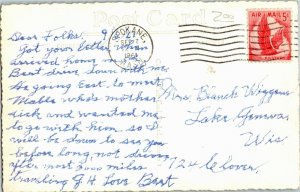 Post Card
200
SPOKANE
SEP 7
1961
AIR MAIL 5¢
Dear Folks.
Got your letter when
arrived home
Bert drove down with me
He going East to meet
Mable who's mother
sick and wanted me
to go with him so I
will be down to see you
before long not driving
after most 3000 miles
traveling if it Love Bert
Mrs. Blanch Wiggins
Lake Geneva,
Wis
724 Clover,